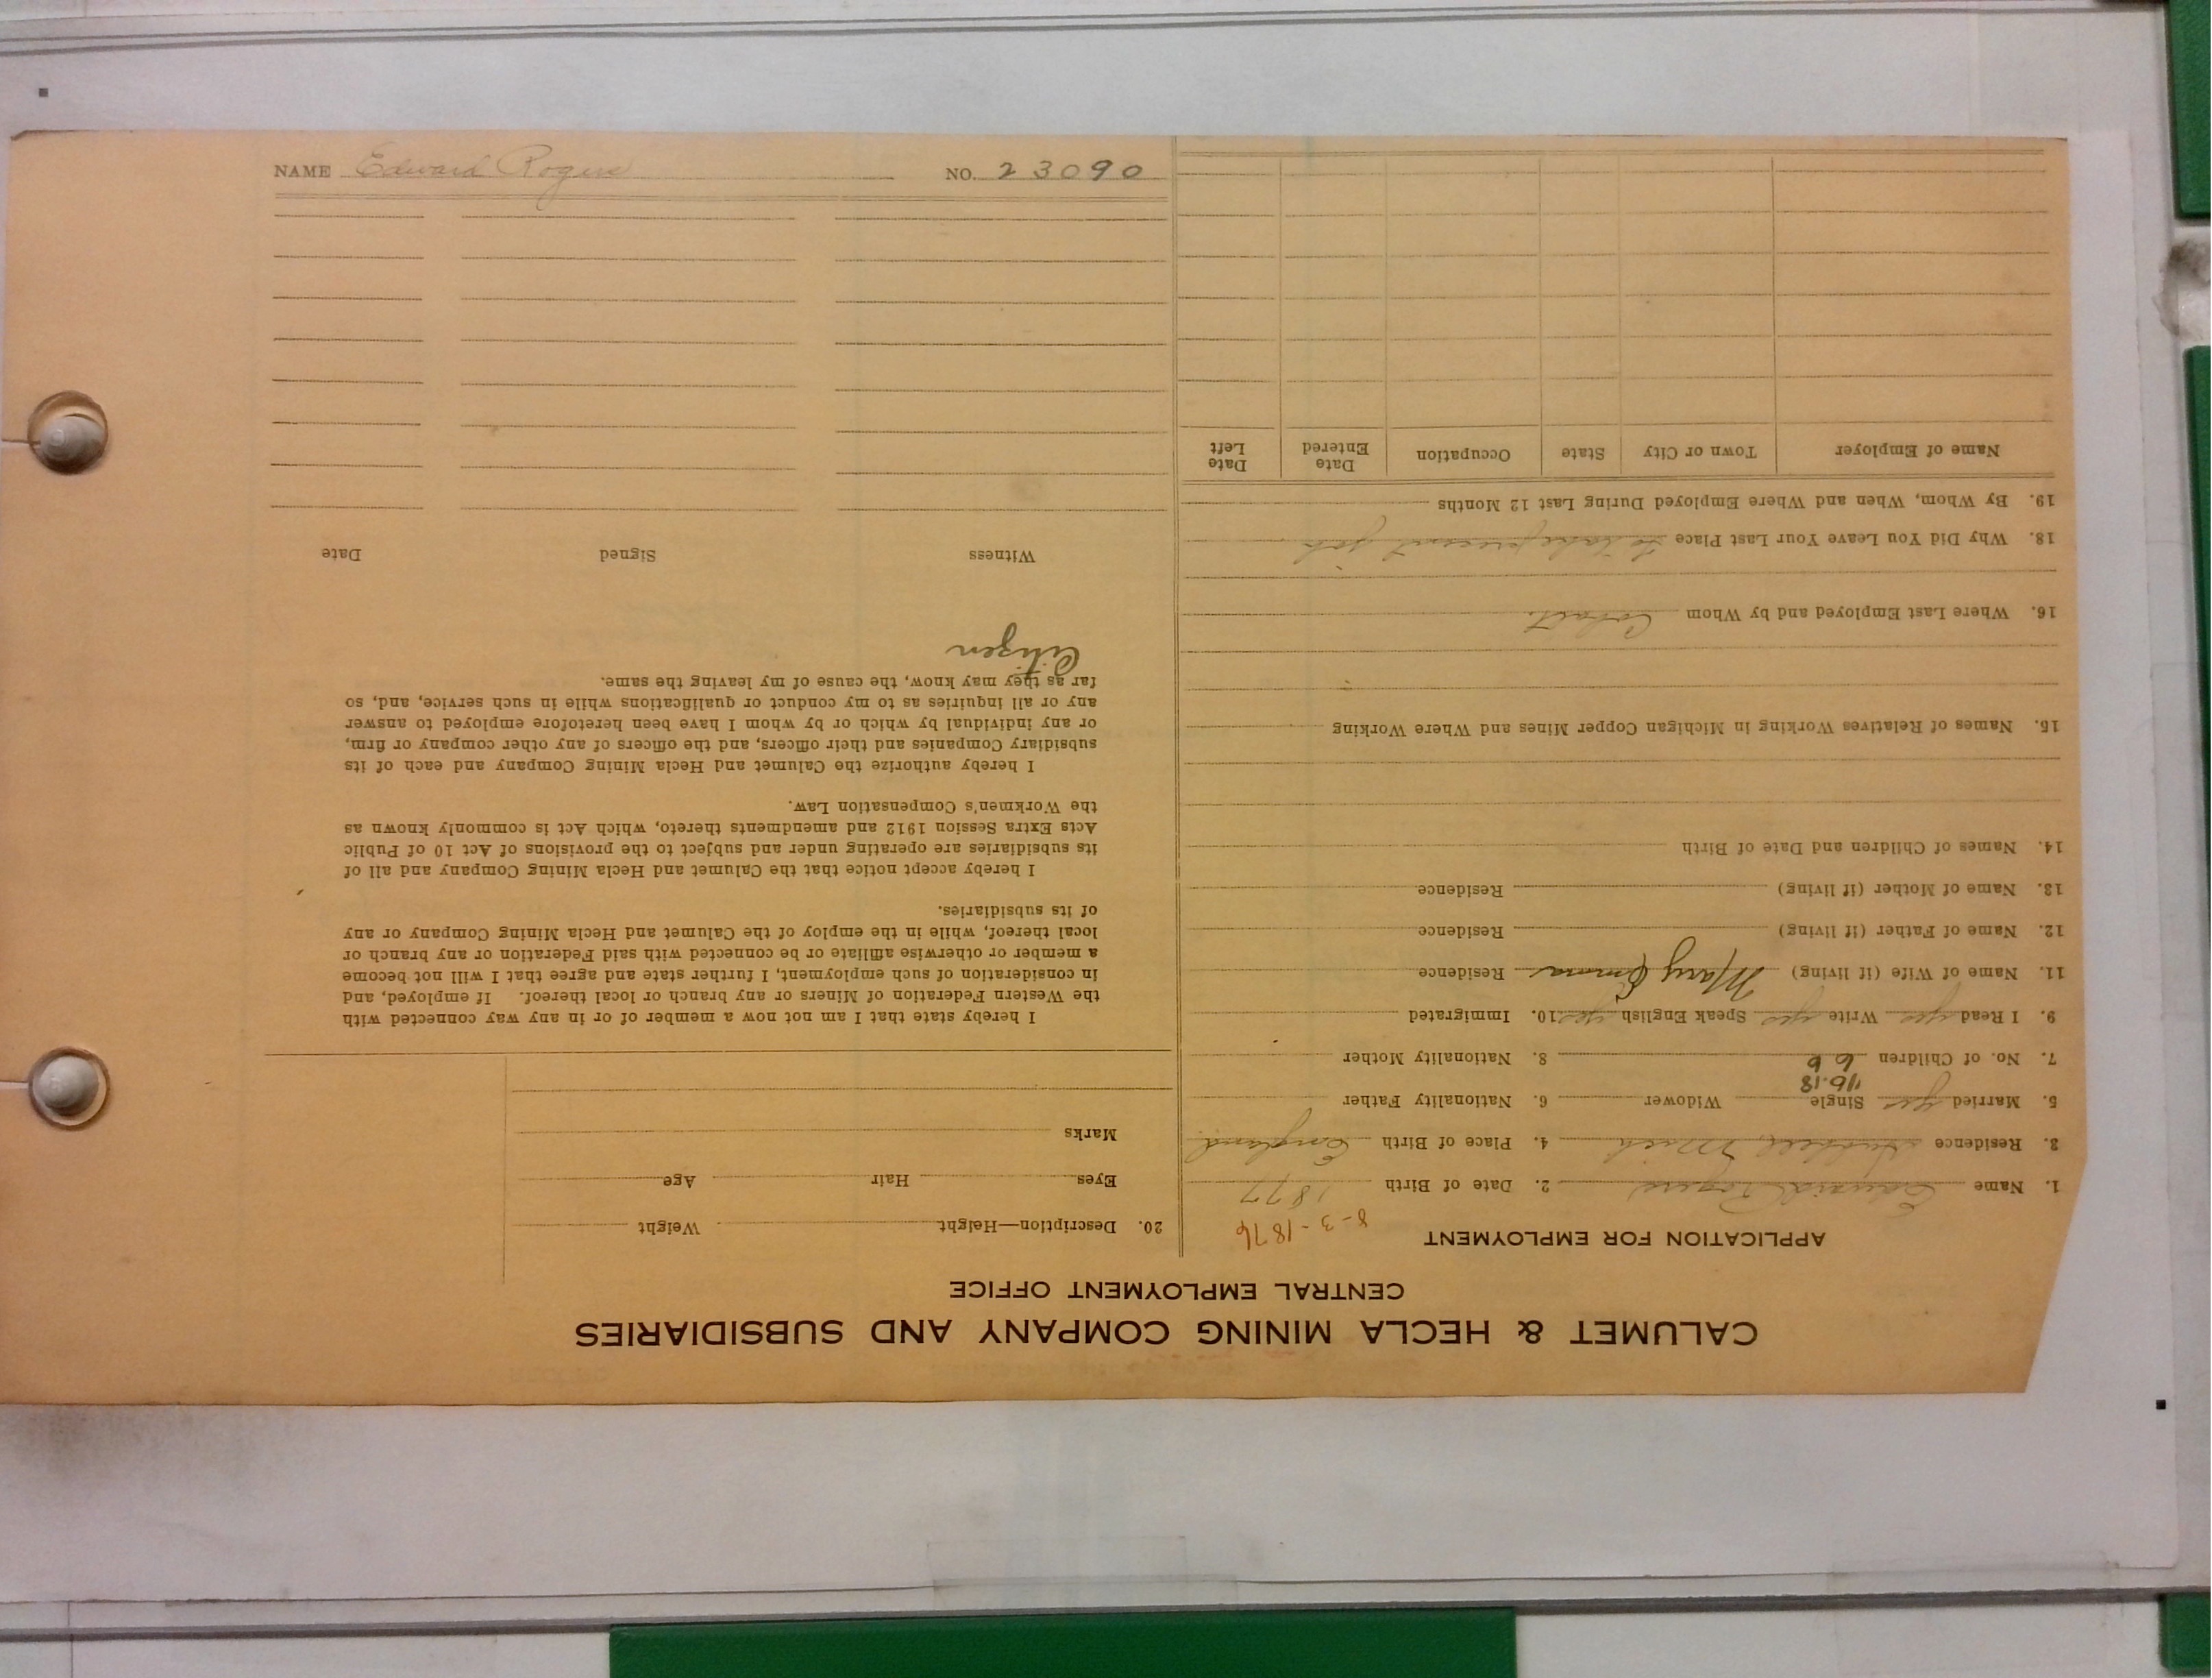 CALUMET & HECLA MINING COMPANY AND SUBSIDIARIES
CENTRAL EMPLOYMENT OFFICE
APPLICATION FOR EMPLOYMENT
8-3-1876
1. Name Edward Rogers 2. Date of Birth 1877
3. Residence Hubbell, Mich 4. Place of Birth England
5. Married yes Single Widower 6. Nationality Father
7. No. of Children 6 8. Nationality Mother
9. I Read yes Write yes Speak English yes 10. Immigrated
11. Name of Wife (if living) Mary Emma Residence
12. Name of Father (if living) Residence
13. Name of Mother (if living) Residence
14. Names of Children and Date of Birth
15. Names of Relatives Working in Michigan Copper Mines and Where Working
16. Where Last Employed and by Whom
18. Why Did You Leave Your Last Place to take present job
19. By Whom, When and Where Employed During Last 12 Months
Name of Employer Town or City State Occupation Date Entered Date Left
20. Description—Height Weight
Eyes Hair Age
Marks
I hereby state that I am not now a member of or in any way connected with
the Western Federation of Miners or any branch or local thereof. If employed, and
in consideration of such employment, I further state and agree that I will not become
a member or otherwise affiliate or be connected with said Federation or any branch or
local thereof, while in the employ of the Calumet and Hecla Mining Company or any
of its subsidiaries.
I hereby accept notice that the Calumet and Hecla Mining Company and all of
its subsidiaries are operating under and subject to the provisions of Act 10 of Public
Acts Extra Session 1912 and amendments thereto, which Act is commonly known as
the Workmen's Compensation Law.
I hereby authorize the Calumet and Hecla Mining Company and each of its
subsidiary Companies and their officers, and the officers of any other company or firm,
or any individual by which or by whom I have been heretofore employed to answer
any or all inquiries as to my conduct or qualifications while in such service, and, so
far as they may know, the cause of my leaving the same.
Citizen
Witness Signed Date
NAME Edward Rogers NO. 23090